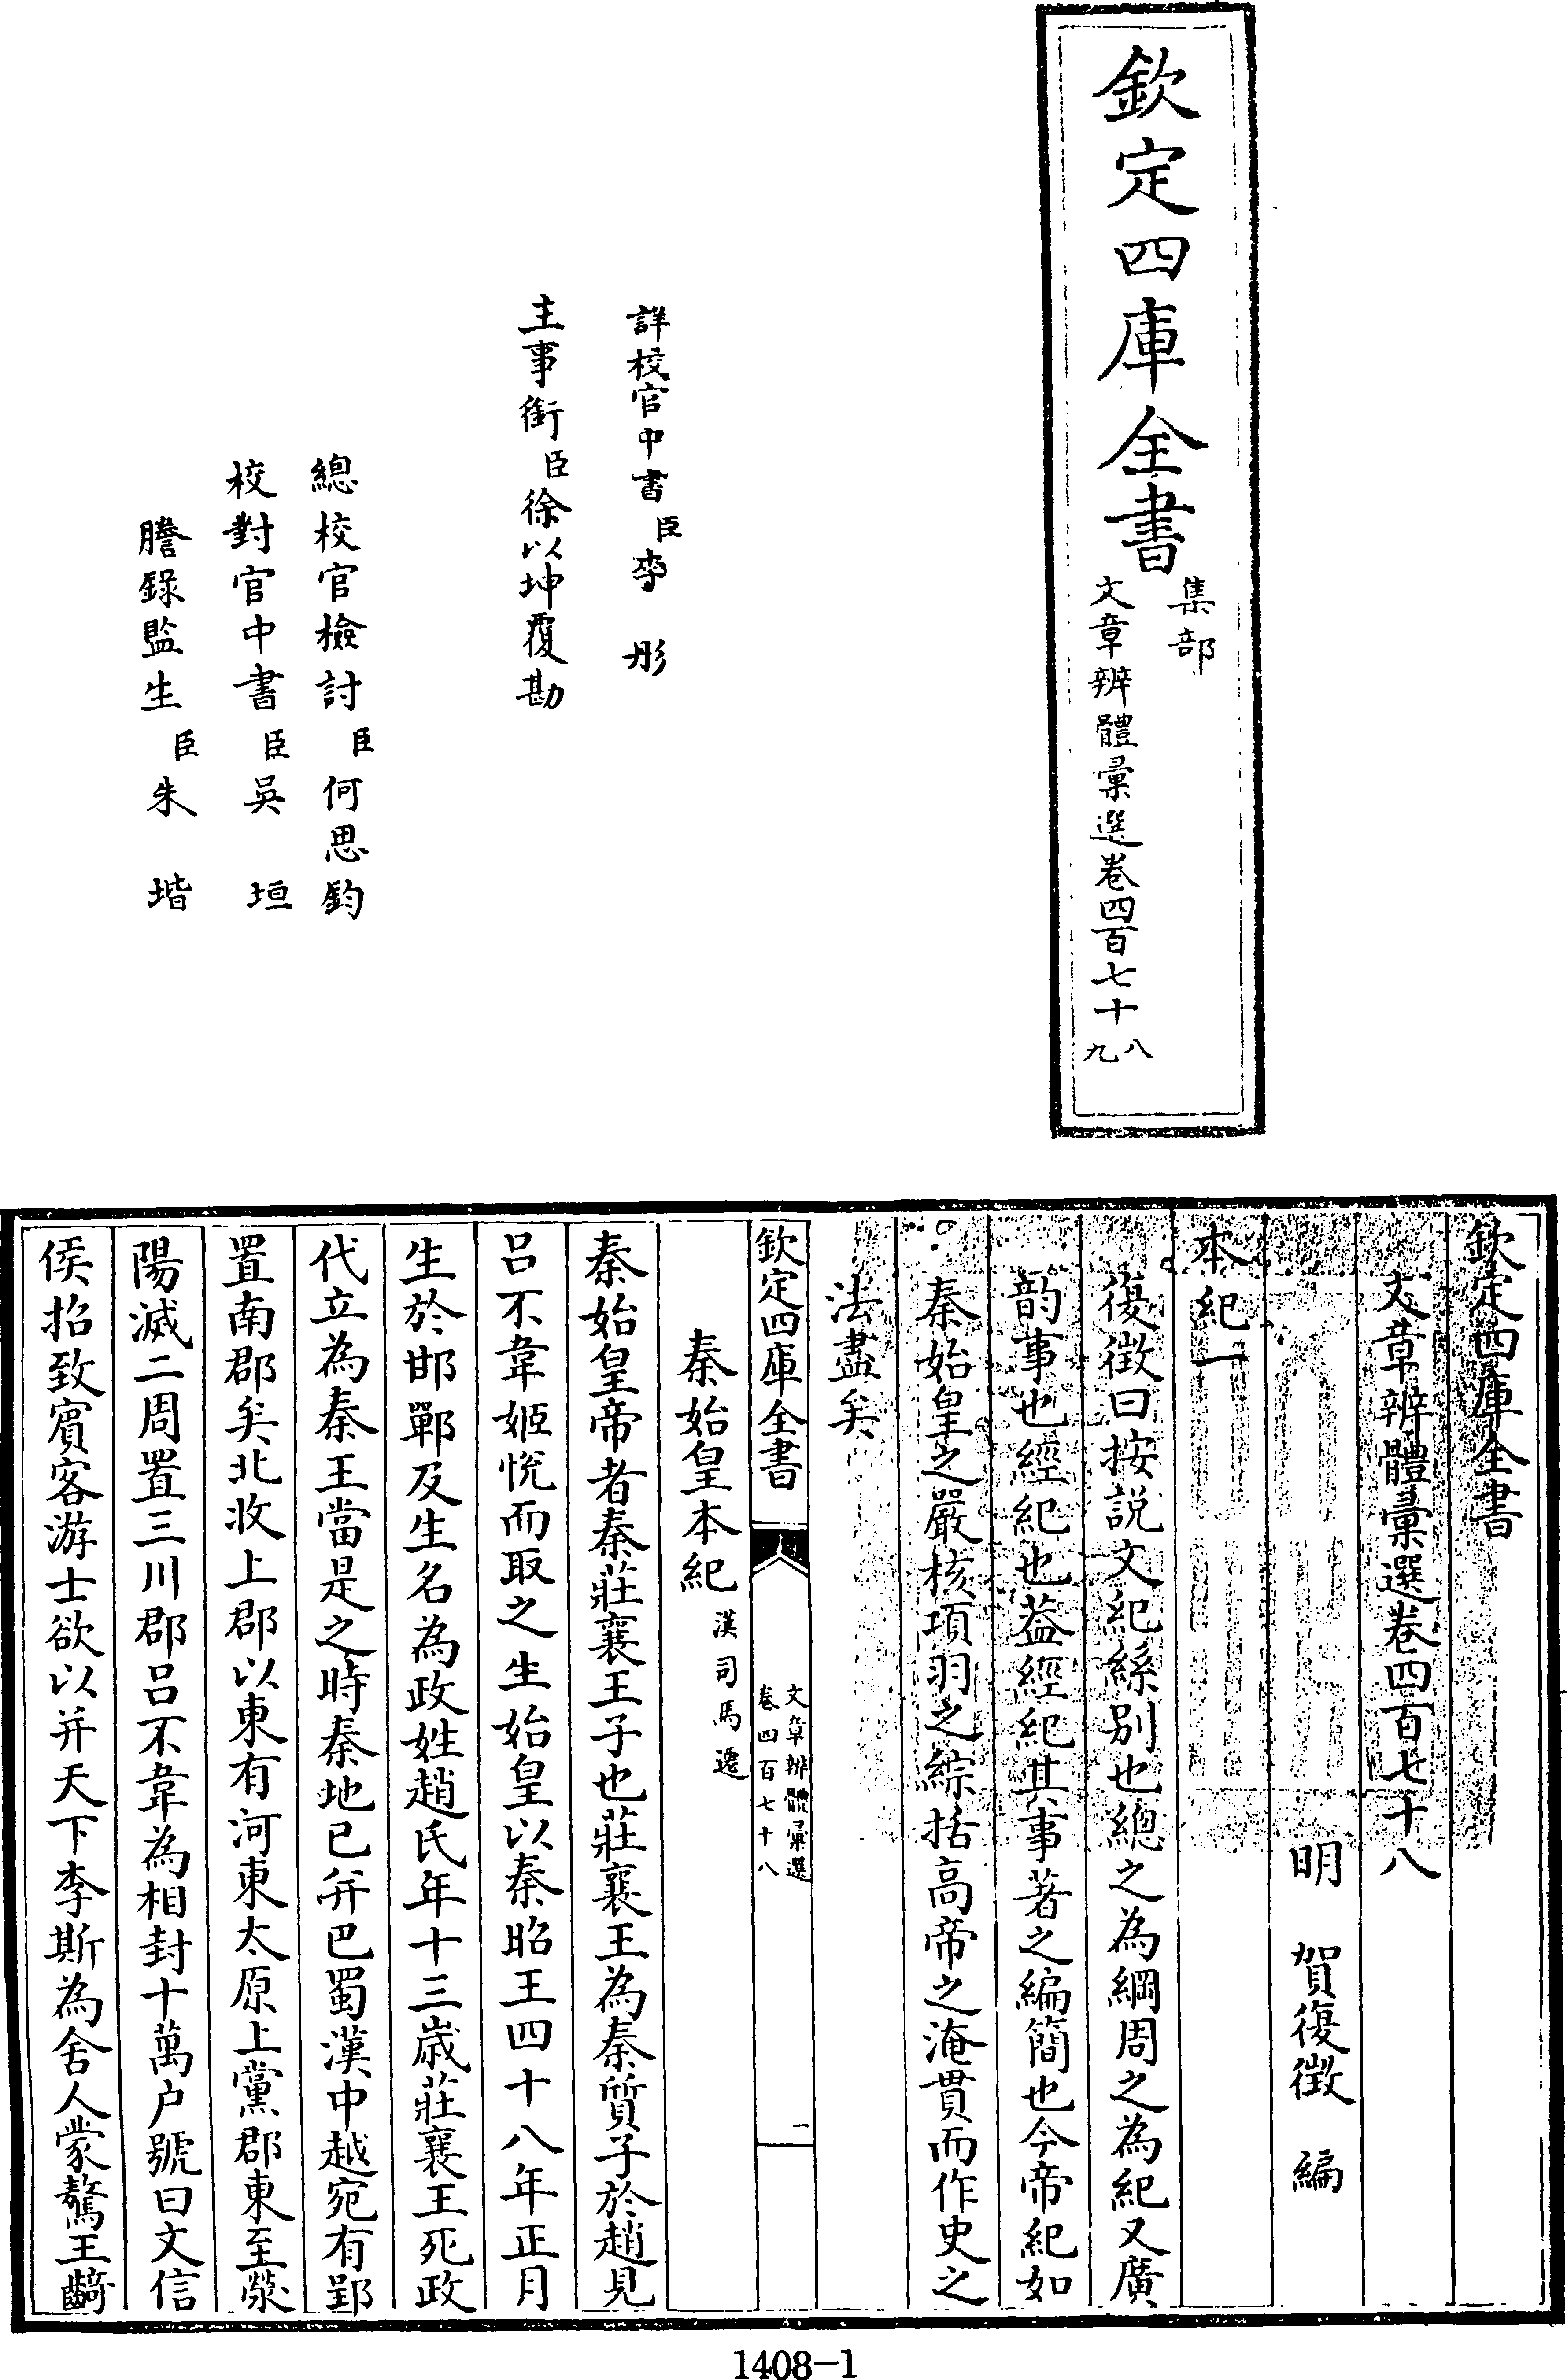 欽定四庫全書
集部
文章辨體彙選卷四百七十八九
詳校官中書臣李彤
主事銜臣徐以坤覆勘
總校官檢討臣何思鈞
校對官中書臣吳垣
謄錄監生臣朱堦
欽定四庫全書
文章辨體彙選卷四百七十八
明 賀復徵 編
本紀一
復徵曰按說文紀絲別也總之為綱周之為紀又廣
韵事也經紀也葢經紀其事著之編簡也今帝紀如
秦始皇之嚴核項羽之綜括高帝之淹貫而作史之
法盡矣
欽定四庫全書
文章辨體彙選
卷四百七十八
一
秦始皇本紀 漢司馬遷
秦始皇帝者秦莊襄王子也莊襄王為秦質子於趙見
呂不韋姬悅而取之生始皇以秦昭王四十八年正月
生於邯鄲及生名為政姓趙氏年十三歲莊襄王死政
代立為秦王當是之時秦地已并巴蜀漢中越宛有郢
置南郡矣北收上郡以東有河東太原上黨郡東至滎
陽滅二周置三川郡呂不韋為相封十萬户號曰文信
侯招致賓客游士欲以并天下李斯為舍人蒙驁王齮
1408-1